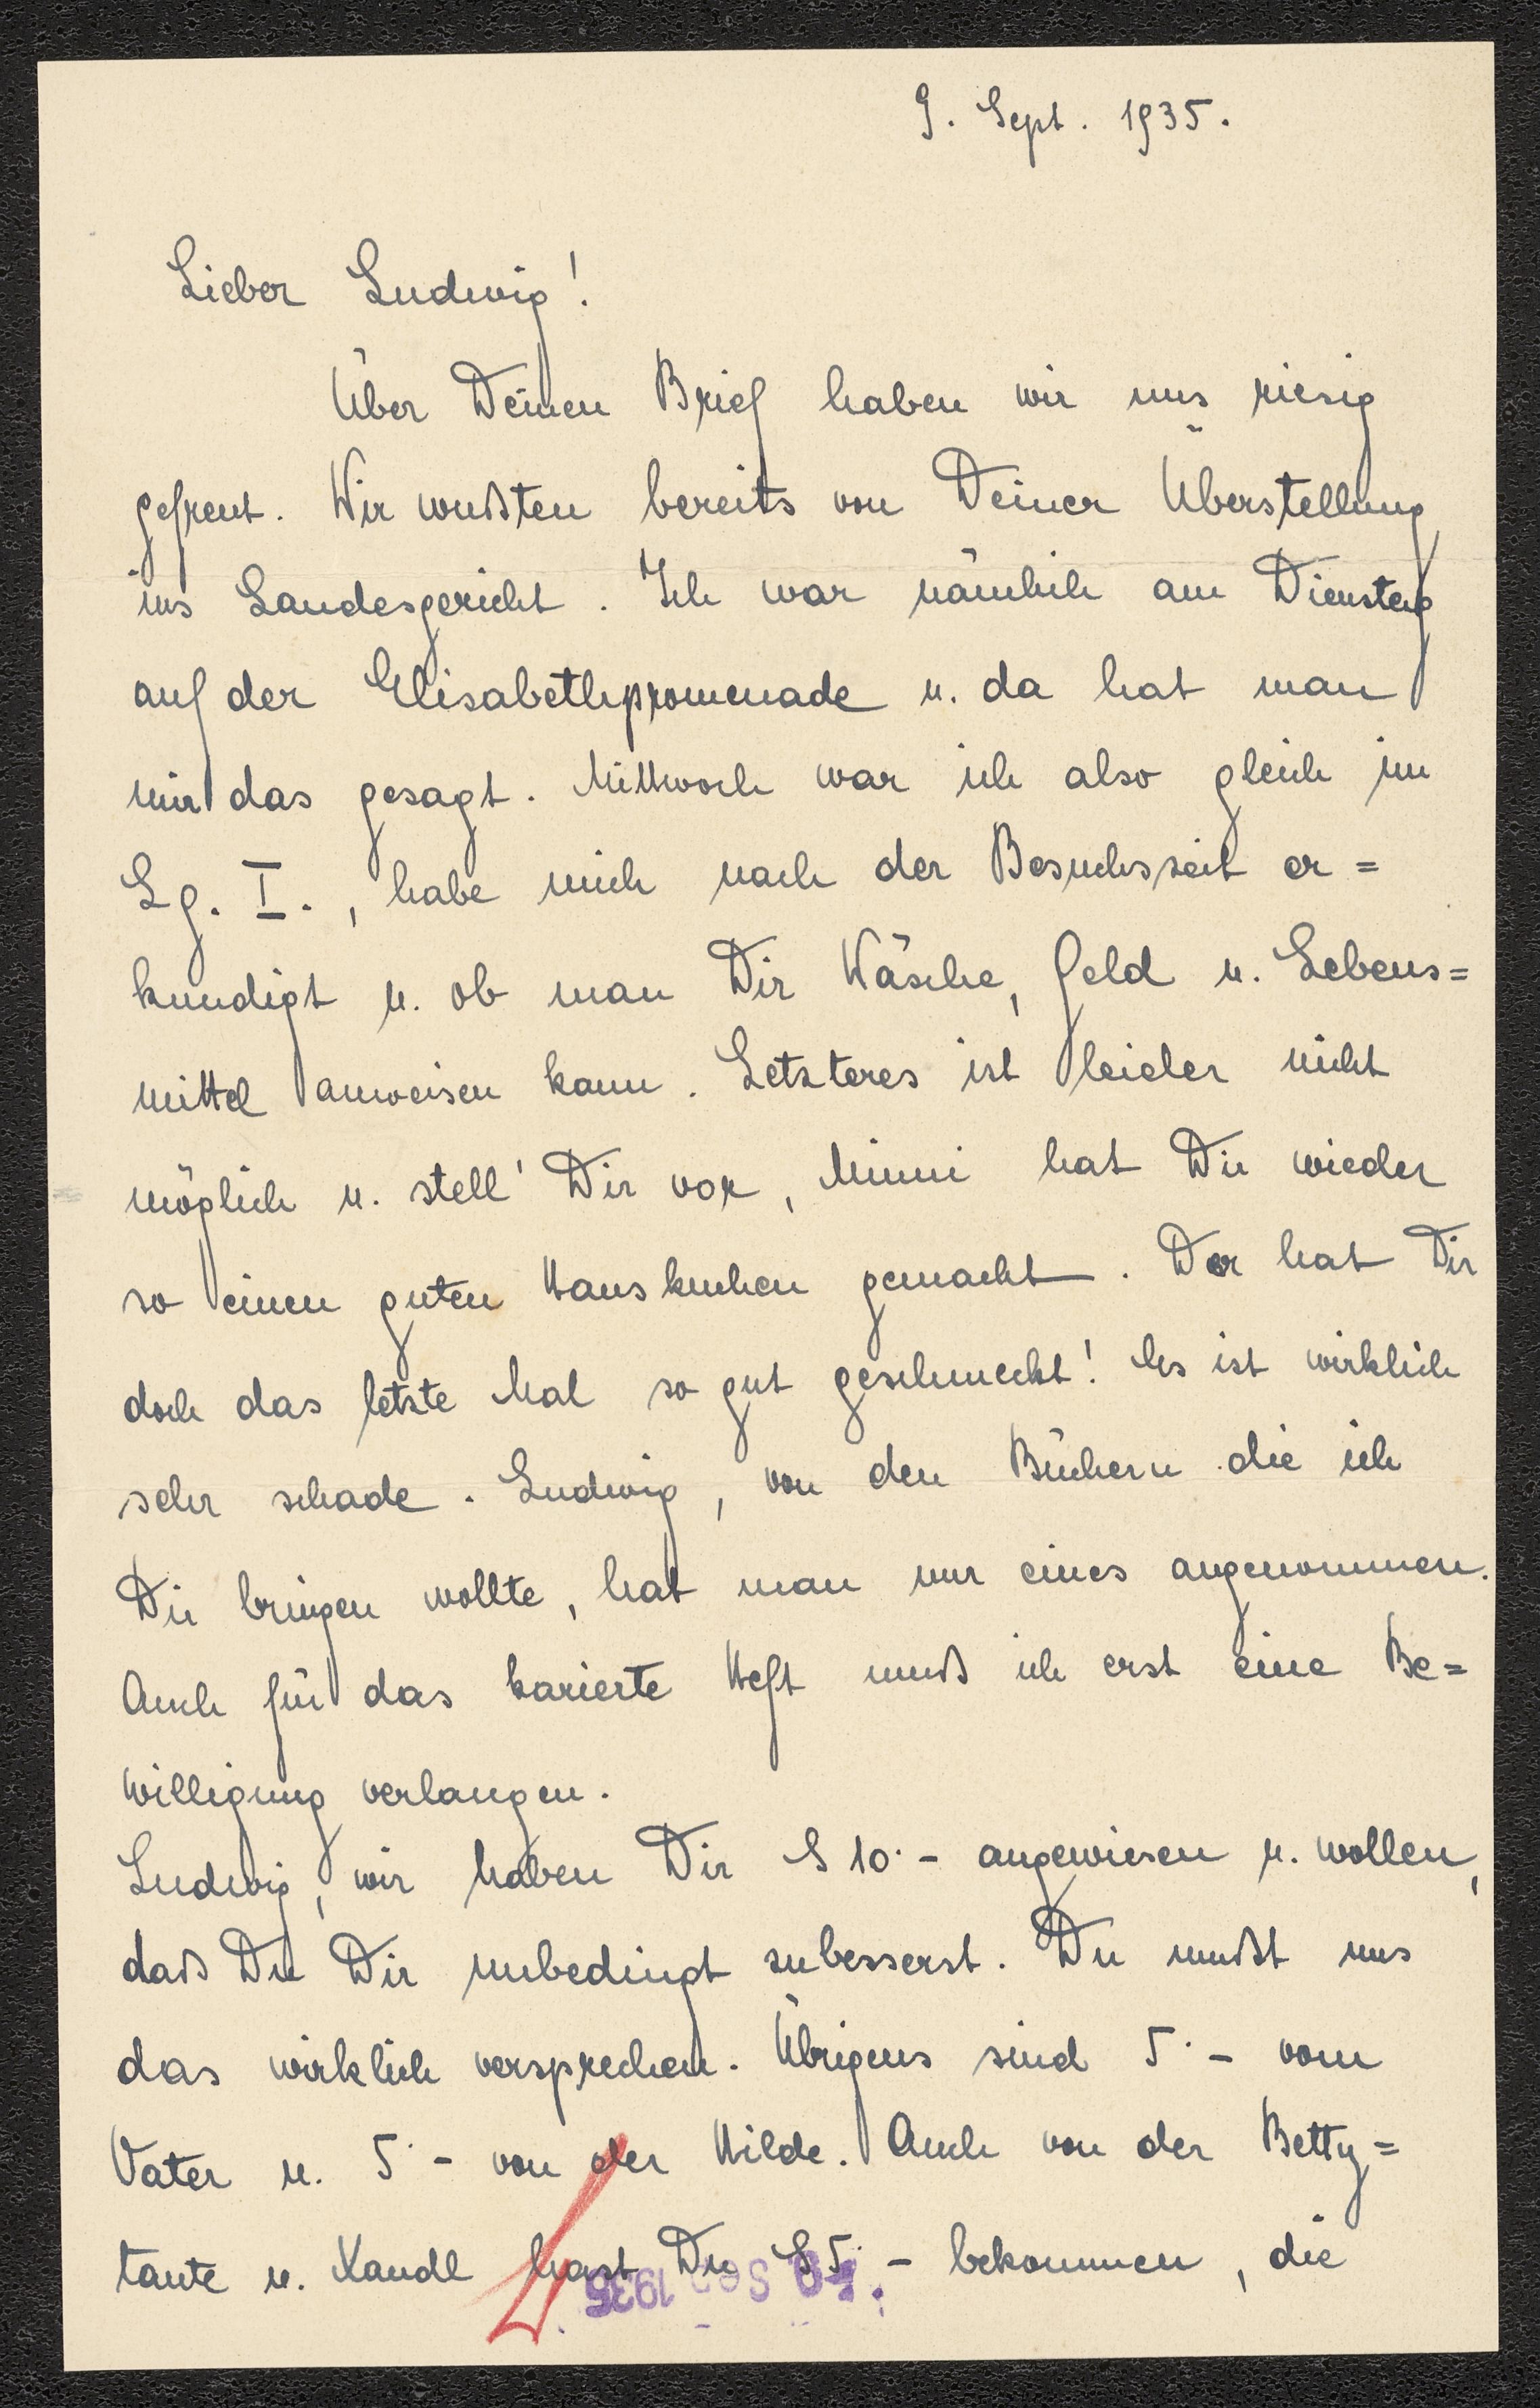 9. Sept. 1935.
Lieber Ludwig!
Über Deinen Brief haben wir uns riesig
gefreut. Wir wußten bereits von Deiner Überstellung
ins Landesgericht. Ich war nämlich am Dienstag
auf der Elisabethpromenade u. da hat man
mir das gesagt. Mittwoch war ich also gleich im
Lg. I., habe mich nach der Besuchszeit er=
kundigt u. ob man Dir Wäsche, Geld u. Lebens=
mittel anweisen kann. Letzteres ist leider nicht
möglich u. stell' Dir vor, Minni hat Dir wieder
so einen guten Hauskuchen gemacht. Der hat Dir
doch das letzte Mal so gut geschmeckt! Es ist wirklich
sehr schade. Ludwig, von den Büchern die ich
Dir bringen wollte, hat man nur eines angenommen.
Auch für das karierte Heft muß ich erst eine Be=
willigung verlangen.
Ludwig, wir haben Dir S 10·- angewiesen u. wollen,
daß Du Dir unbedingt zubesserst. Du mußt uns
das wirklich versprechen. Übrigens sind 5·- vom
Vater u. 5·- von der Hilde. Auch von der Betty=
tante u. Xandl hast Du S 5·- bekommen, die
Sep 1935